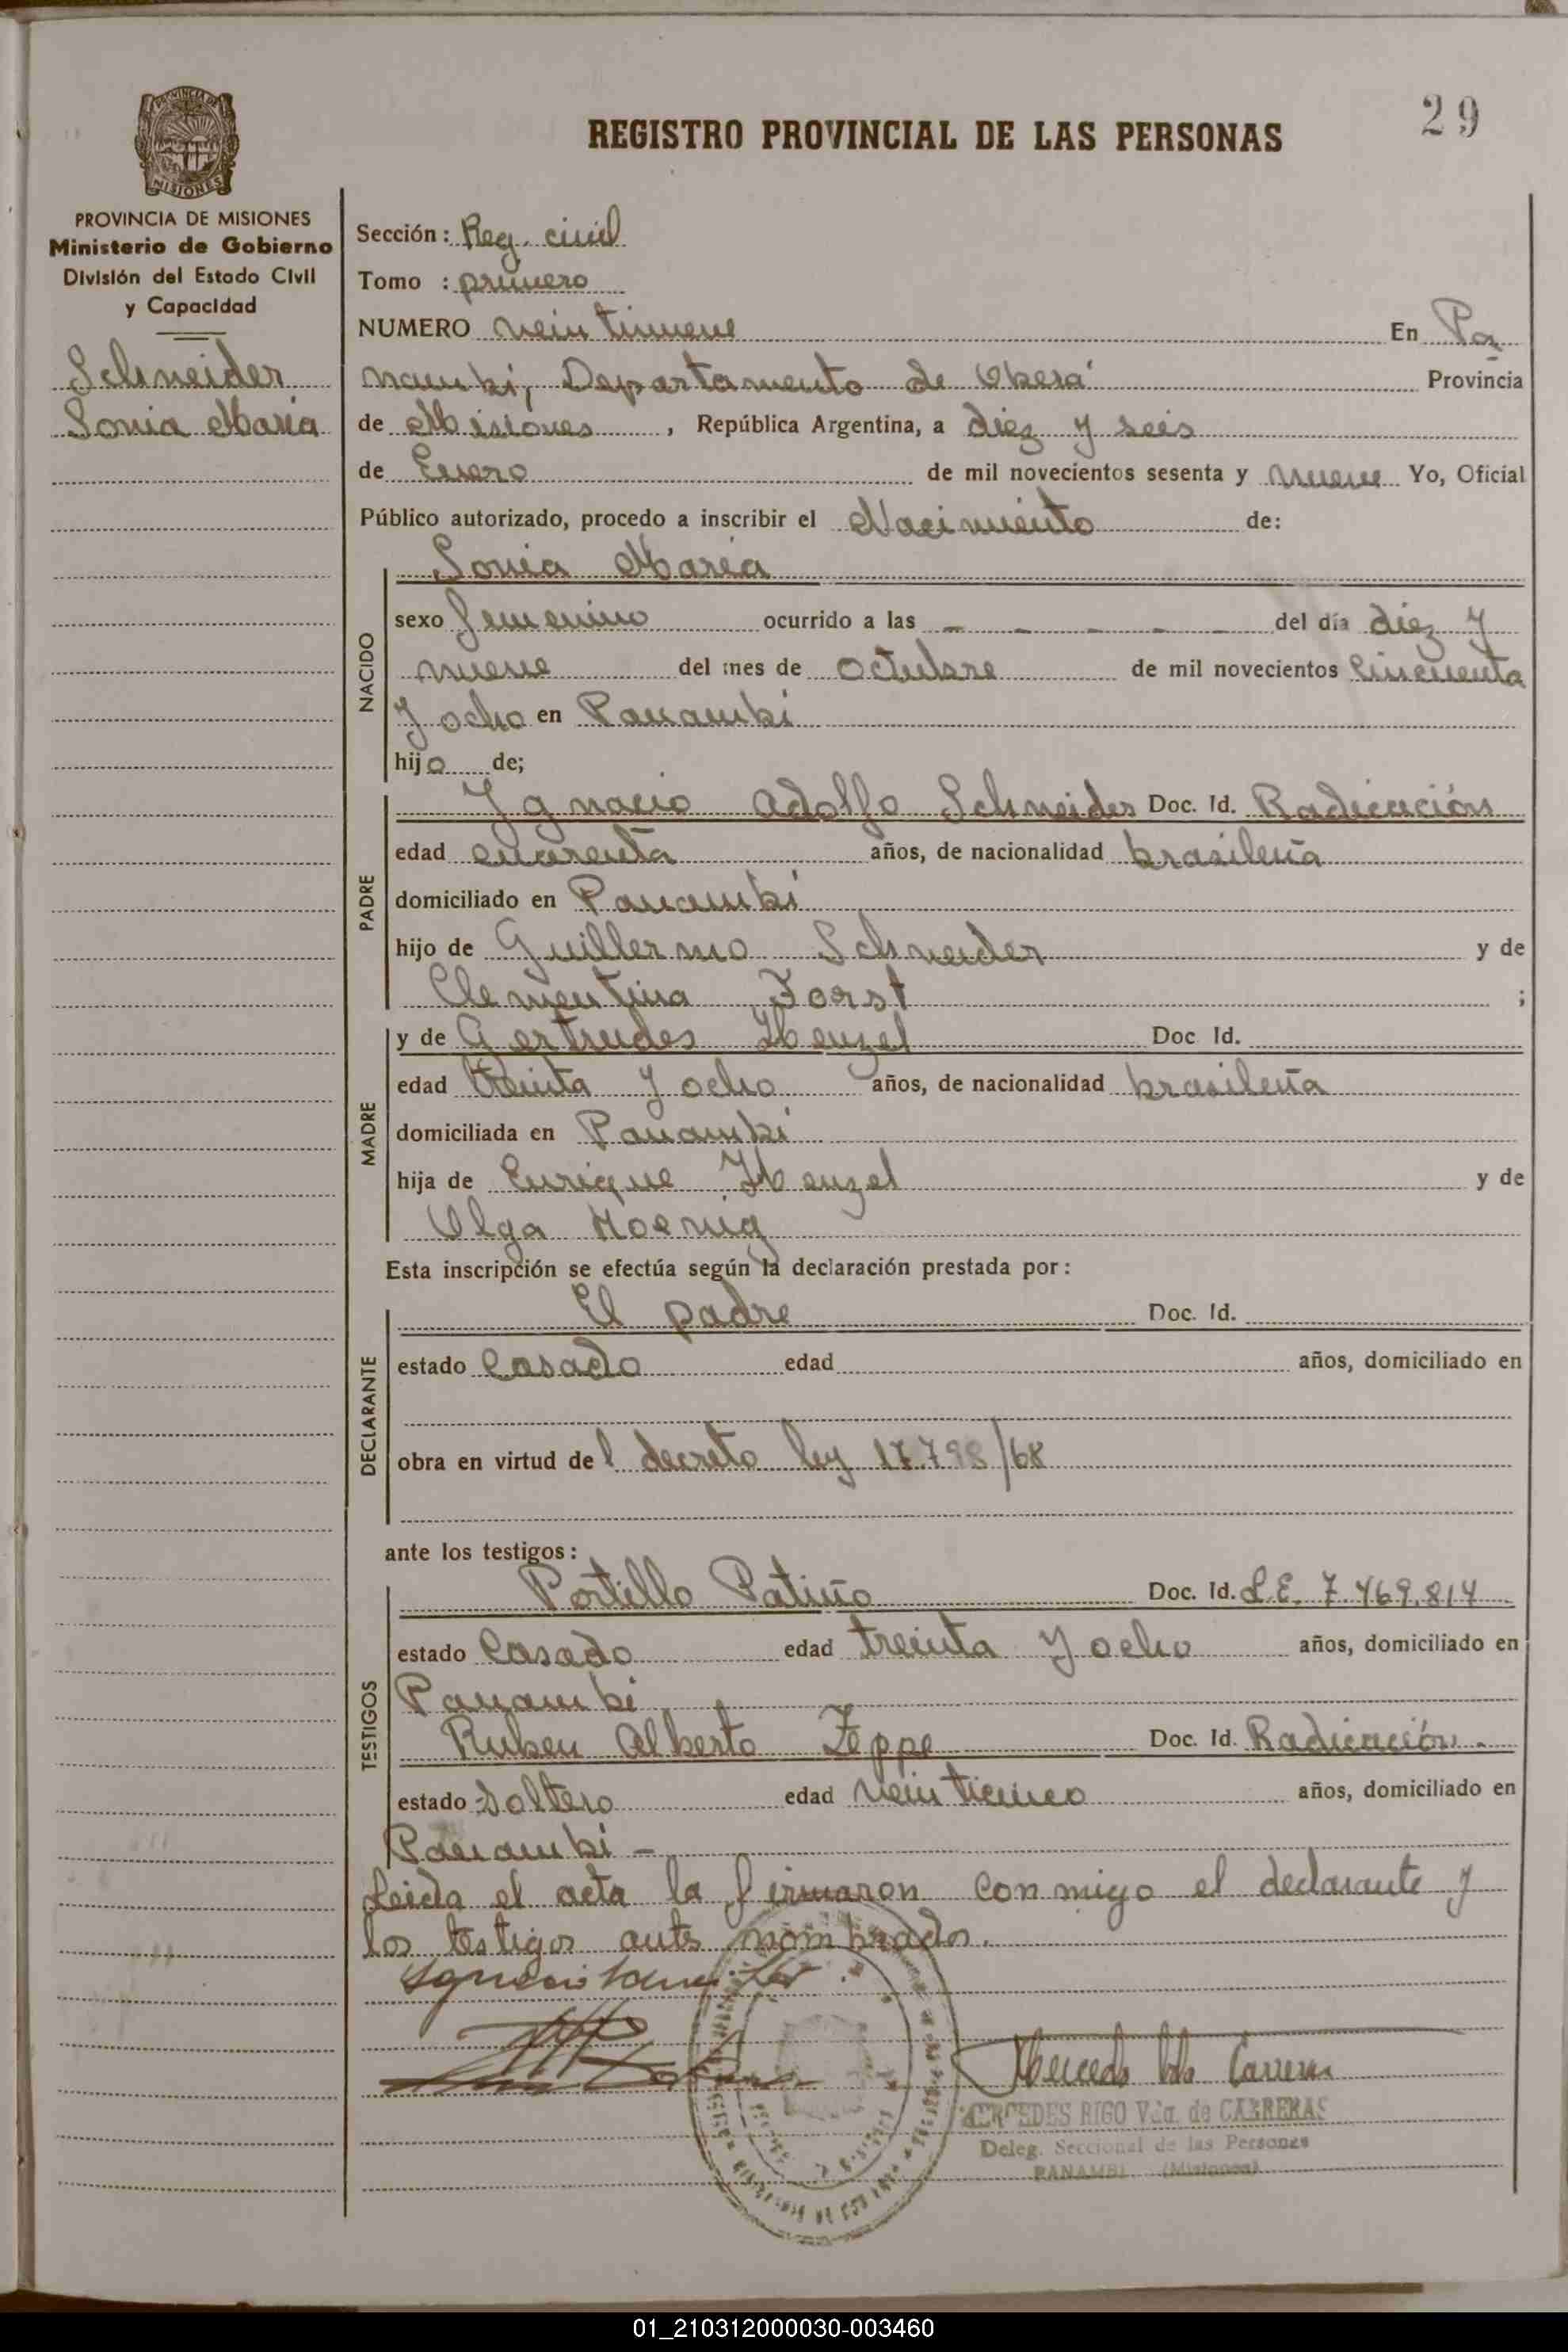 29
REGISTRO PROVINCIAL DE LAS PERSONAS
PROVINCIA DE MISIONES
MISIONES
PROVINCIA DE MISIONES
Ministerio de Gobierno
División del Estado Civil
y Capacidad
Schneider
Sonia Maria
Sección: Reg. civil
Tomo : primero
NUMERO veintinueve En Pa
nambi, Departamento de Oberá Provincia
de Misiones, República Argentina, a diez y seis
de Enero de mil novecientos sesenta y nueve Yo, Oficial
Público autorizado, procedo a inscribir el Nacimiento de:
NACIDO
Sonia Maria
sexo femenino ocurrido a las - - - - - del día diez y
nueve del mes de octubre de mil novecientos cincuenta
y ocho en Panambi
hijo de;
PADRE
Ygnacio Adolfo Schneider Doc. Id. Radicación
edad cuarenta años, de nacionalidad brasileña
domiciliado en Panambi
hijo de Guillermo Schneider y de
Clementina Forst ;
MADRE
y de Gertrudes Henzel Doc Id.
edad treinta y ocho años, de nacionalidad brasileña
domiciliada en Panambi
hija de Enrique Henzel y de
Olga Hoenig
Esta inscripción se efectúa según la declaración prestada por:
DECLARANTE
El padre Doc. Id.
estado Casado edad años, domiciliado en
obra en virtud del decreto ley 17.798/68
ante los testigos:
TESTIGOS
Portillo Patiño Doc. Id. L.E. 7.469.814
estado Casado edad treinta y ocho años, domiciliado en
Panambi
Ruben Alberto Zeppe Doc. Id. Radicación.
estado soltero edad veinticinco años, domiciliado en
Panambi -
Leida el acta la firmaron conmigo el declarante y
los testigos ants nombrados.
MERCEDES RIGO Vda. de CARRERAS
Deleg. Seccional de las Personas
PANAMBI (Misiones)
01_210312000030-003460